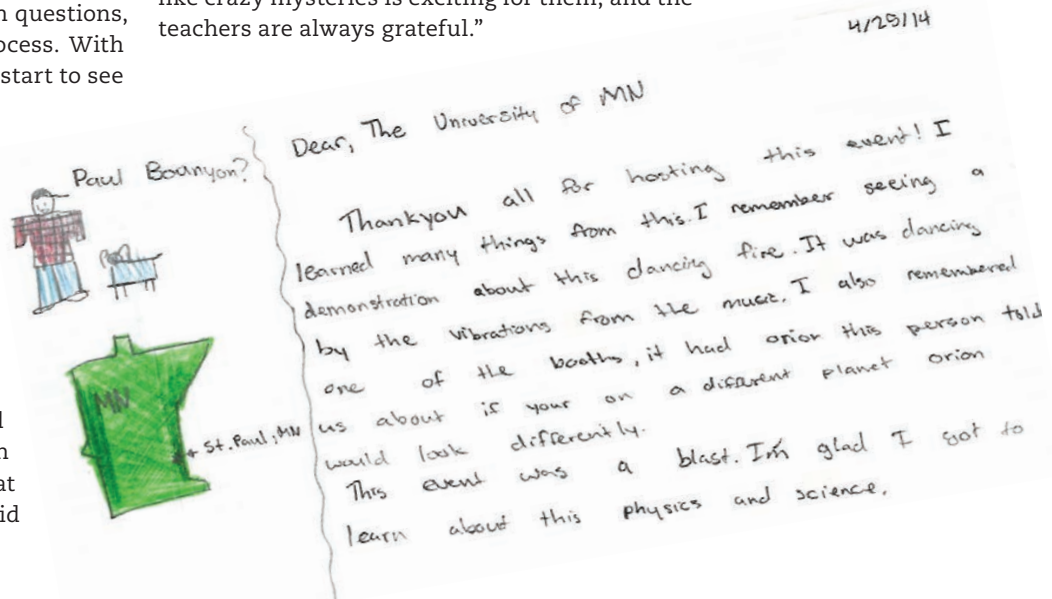 n questions,
ocess. With
start to see
like crazy mysteries is exciting for them, and the
teachers are always grateful.”
4/25/14
Paul Bounyon?
MN
St. Paul, MN
Dear, The University of MN
Thankyou all for hosting this event! I
learned many things from this. I remember seeing a
demonstration about this dancing fire. It was dancing
by the vibrations from the music. I also remembered
one of the booths, it had orion this person told
us about if your on a different planet orion
would look differently.
This event was a blast. I'm glad I got to
learn about this physics and science.
l
n
at
id